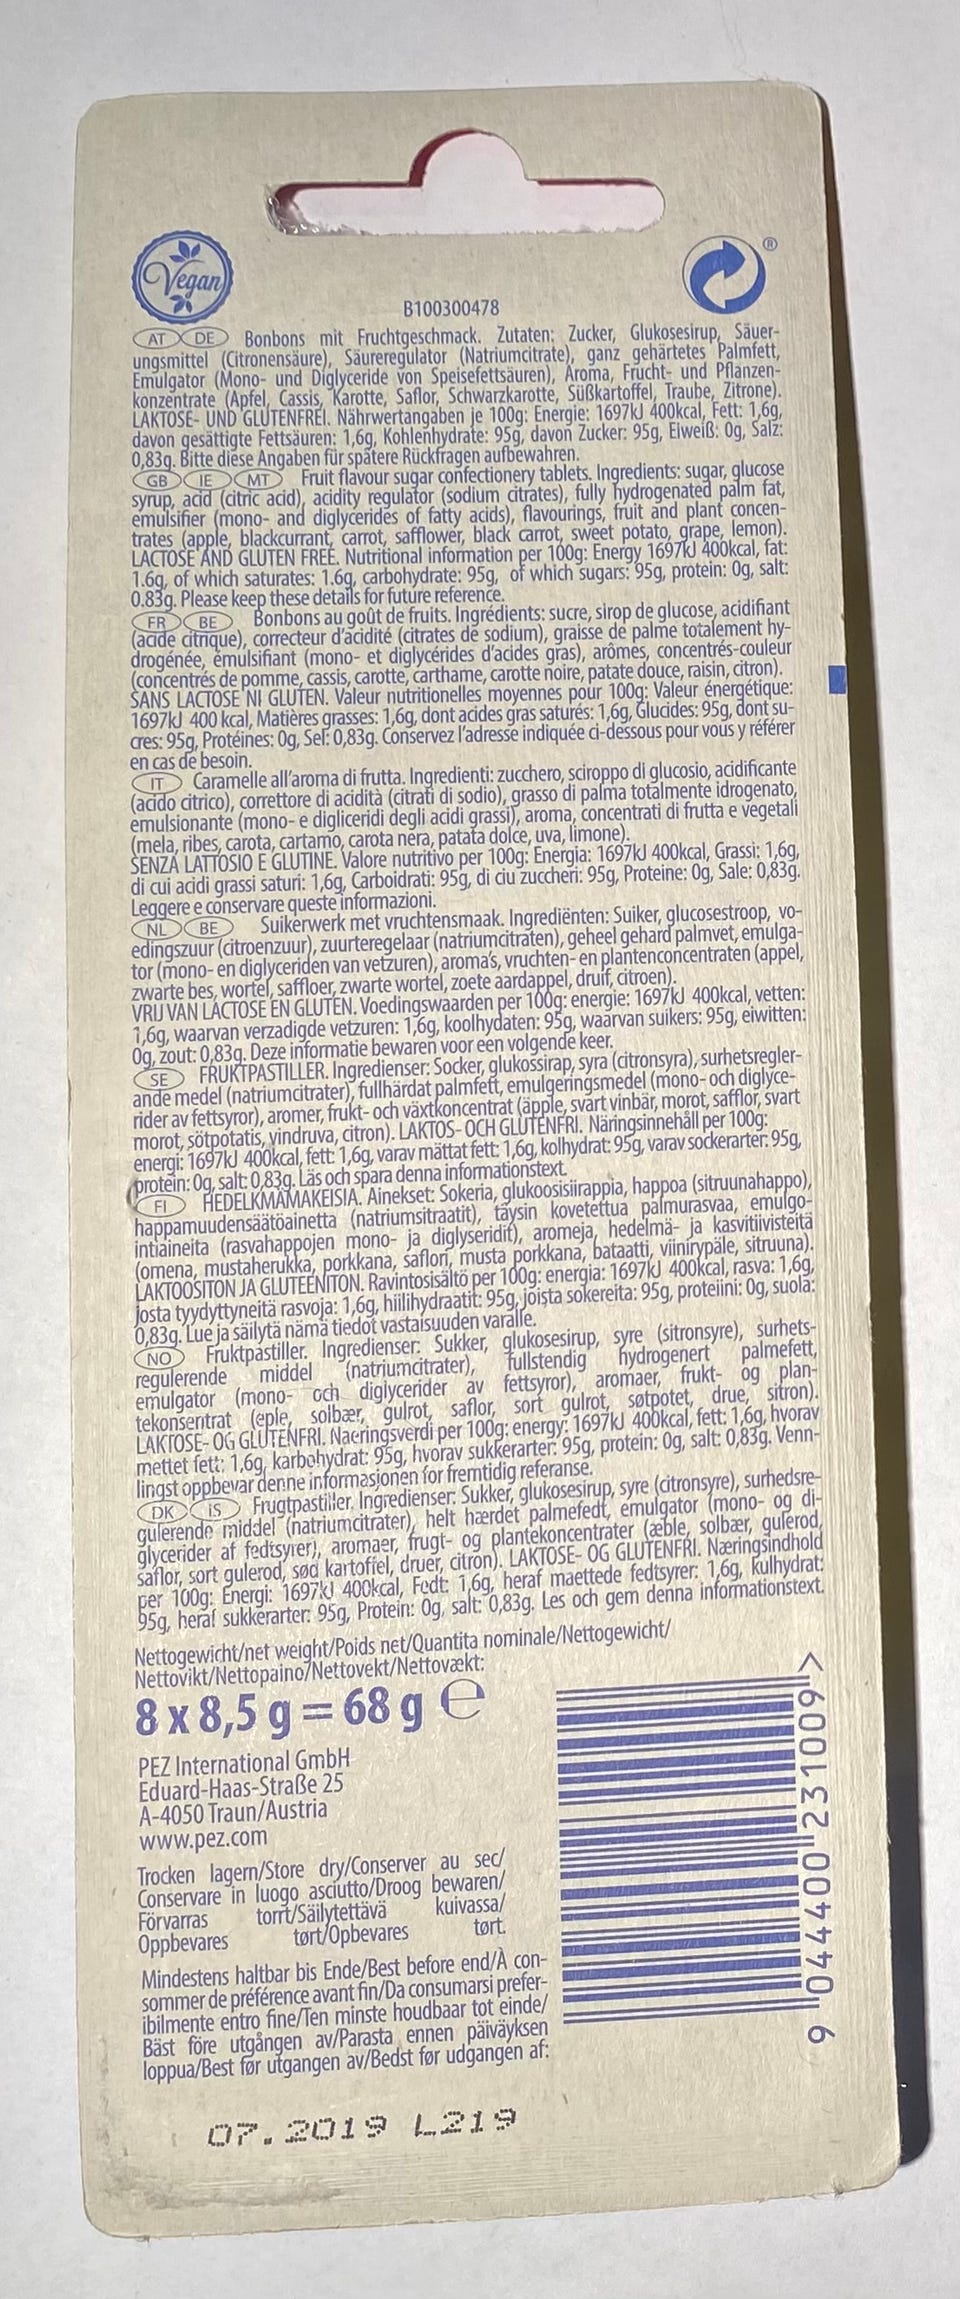 Vegan
®
B100300478
AT DE Bonbons mit Fruchtgeschmack. Zutaten: Zucker, Glukosesirup, Säuer-
ungsmittel (Citronensäure), Säureregulator (Natriumcitrate), ganz gehärtetes Palmfett,
Emulgator (Mono- und Diglyceride von Speisefettsäuren), Aroma, Frucht- und Pflanzen-
konzentrate (Apfel, Cassis, Karotte, Saflor, Schwarzkarotte, Süßkartoffel, Traube, Zitrone).
LAKTOSE- UND GLUTENFREI. Nährwertangaben je 100g: Energie: 1697kJ 400kcal, Fett: 1,6g,
davon gesättigte Fettsäuren: 1,6g, Kohlenhydrate: 95g, davon Zucker: 95g, Eiweiß: 0g, Salz:
0,83g. Bitte diese Angaben für spätere Rückfragen aufbewahren.
GB IE MT Fruit flavour sugar confectionery tablets. Ingredients: sugar, glucose
syrup, acid (citric acid), acidity regulator (sodium citrates), fully hydrogenated palm fat,
emulsifier (mono- and diglycerides of fatty acids), flavourings, fruit and plant concen-
trates (apple, blackcurrant, carrot, safflower, black carrot, sweet potato, grape, lemon).
LACTOSE AND GLUTEN FREE. Nutritional information per 100g: Energy 1697kJ 400kcal, fat:
1.6g, of which saturates: 1.6g, carbohydrate: 95g, of which sugars: 95g, protein: 0g, salt:
0.83g. Please keep these details for future reference.
FR BE Bonbons au goût de fruits. Ingrédients: sucre, sirop de glucose, acidifiant
(acide citrique), correcteur d'acidité (citrates de sodium), graisse de palme totalement hy-
drogénée, émulsifiant (mono- et diglycérides d'acides gras), arômes, concentrés-couleur
(concentrés de pomme, cassis, carotte, carthame, carotte noire, patate douce, raisin, citron).
SANS LACTOSE NI GLUTEN. Valeur nutritionelles moyennes pour 100g: Valeur énergétique:
1697kJ 400 kcal, Matières grasses: 1,6g, dont acides gras saturés: 1,6g, Glucides: 95g, dont su-
cres: 95g, Protéines: 0g, Sel: 0,83g. Conservez l'adresse indiquée ci-dessous pour vous y référer
en cas de besoin.
IT Caramelle all'aroma di frutta. Ingredienti: zucchero, sciroppo di glucosio, acidificante
(acido citrico), correttore di acidità (citrati di sodio), grasso di palma totalmente idrogenato,
emulsionante (mono- e digliceridi degli acidi grassi), aroma, concentrati di frutta e vegetali
(mela, ribes, carota, cartamo, carota nera, patata dolce, uva, limone).
SENZA LATTOSIO E GLUTINE. Valore nutritivo per 100g: Energia: 1697kJ 400kcal, Grassi: 1,6g,
di cui acidi grassi saturi: 1,6g, Carboidrati: 95g, di ciu zuccheri: 95g, Proteine: 0g, Sale: 0,83g.
Leggere e conservare queste informazioni.
NL BE Suikerwerk met vruchtensmaak. Ingrediënten: Suiker, glucosestroop, vo-
edingszuur (citroenzuur), zuurteregelaar (natriumcitraten), geheel gehard palmvet, emulga-
tor (mono- en diglyceriden van vetzuren), aroma's, vruchten- en plantenconcentraten (appel,
zwarte bes, wortel, saffloer, zwarte wortel, zoete aardappel, druif, citroen).
VRIJ VAN LACTOSE EN GLUTEN. Voedingswaarden per 100g: energie: 1697kJ 400kcal, vetten:
1,6g, waarvan verzadigde vetzuren: 1,6g, koolhydaten: 95g, waarvan suikers: 95g, eiwitten:
0g, zout: 0,83g. Deze informatie bewaren voor een volgende keer.
SE FRUKTPASTILLER. Ingredienser: Socker, glukossirap, syra (citronsyra), surhetsregler-
ande medel (natriumcitrater), fullhärdat palmfett, emulgeringsmedel (mono- och diglyce-
rider av fettsyror), aromer, frukt- och växtkoncentrat (äpple, svart vinbär, morot, safflor, svart
morot, sötpotatis, vindruva, citron). LAKTOS- OCH GLUTENFRI. Näringsinnehåll per 100g:
energi: 1697kJ 400kcal, fett: 1,6g, varav mättat fett: 1,6g, kolhydrat: 95g, varav sockerarter: 95g,
protein: 0g, salt: 0,83g. Läs och spara denna informationstext.
FI HEDELKMÄMAKEISIA. Ainekset: Sokeria, glukoosisiirappia, happoa (sitruunahappo),
happamuudensäätöainetta (natriumsitraatit), täysin kovetettua palmurasvaa, emulgo-
intiaineita (rasvahappojen mono- ja diglyseridit), aromeja, hedelmä- ja kasvitiivisteitä
(omena, mustaherukka, porkkana, saflori, musta porkkana, bataatti, viinirypäle, sitruuna).
LAKTOOSITON JA GLUTEENITON. Ravintosisältö per 100g: energia: 1697kJ 400kcal, rasva: 1,6g,
josta tyydyttyneitä rasvoja: 1,6g, hiilihydraatit: 95g, joista sokereita: 95g, proteiini: 0g, suola:
0,83g. Lue ja säilytä nämä tiedot vastaisuuden varalle.
NO Fruktpastiller. Ingredienser: Sukker, glukosesirup, syre (sitronsyre), surhets-
regulerende middel (natriumcitrater), fullstendig hydrogenert palmefett,
emulgator (mono- och diglycerider av fettsyror), aromaer, frukt- og plan-
tekonsentrat (eple, solbær, gulrot, saflor, sort gulrot, søtpotet, drue, sitron).
LAKTOSE- OG GLUTENFRI. Naeringsverdi per 100g: energy: 1697kJ 400kcal, fett: 1,6g, hvorav
mettet fett: 1,6g, karbohydrat: 95g, hvorav sukkerarter: 95g, protein: 0g, salt: 0,83g. Venn-
lingst oppbevar denne informasjonen for fremtidig referanse.
DK IS Frugtpastiller, Ingredienser: Sukker, glukosesirup, syre (citronsyre), surhedsre-
gulerende middel (natriumcitrater), helt hærdet palmefedt, emulgator (mono- og di-
glycerider af fedtsyrer), aromaer, frugt- og plantekoncentrater (æble, solbær, gulerod,
saflor, sort gulerod, sød kartoffel, druer, citron). LAKTOSE- OG GLUTENFRI. Næringsindhold
per 100g: Energi: 1697kJ 400kcal, Fedt: 1,6g, heraf maettede fedtsyrer: 1,6g, kulhydrat:
95g, heraf sukkerarter: 95g, Protein: 0g, salt: 0,83g. Les och gem denna informationstext.
Nettogewicht/net weight/Poids net/Quantita nominale/Nettogewicht/
Nettovikt/Nettopaino/Nettovekt/Nettovækt:
8 x 8,5 g = 68 g ℮
PEZ International GmbH
Eduard-Haas-Straße 25
A-4050 Traun/Austria
www.pez.com
Trocken lagern/Store dry/Conserver au sec/
Conservare in luogo asciutto/Droog bewaren/
Förvarras torrt/Säilytettävä kuivassa/
Oppbevares tørt/Opbevares tørt.
Mindestens haltbar bis Ende/Best before end/À con-
sommer de préférence avant fin/Da consumarsi prefer-
ibilmente entro fine/Ten minste houdbaar tot einde/
Bäst före utgången av/Parasta ennen päiväyksen
loppua/Best før utgangen av/Bedst før udgangen af:
9 044400 231009 >
07.2019 L219